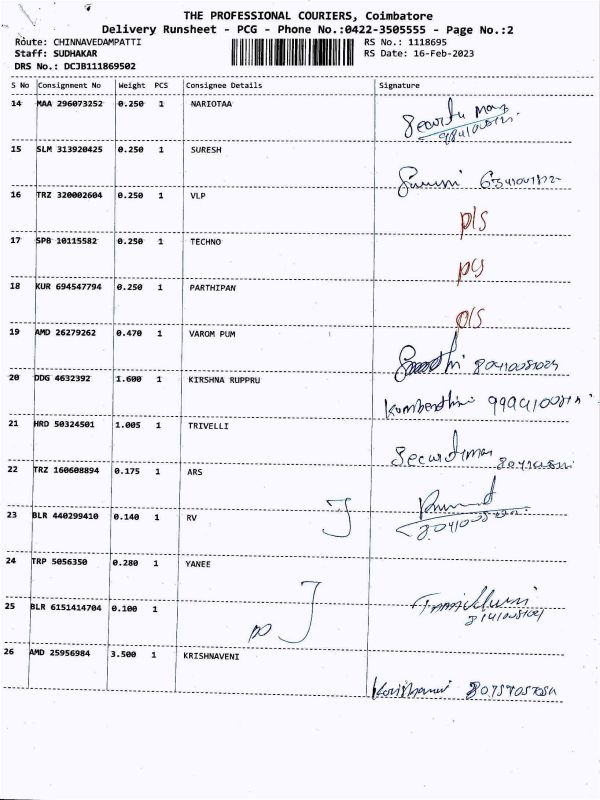 THE PROFESSIONAL COURIERS, Coimbatore
Delivery Runsheet - PCG - Phone No.:0422-3505555 - Page No.:2
Route: CHINNAVEDAMPATTI RS No.: 1118695
Staff: SUDHAKAR RS Date: 16-Feb-2023
DRS No.: DCJB111869502
S No Consignment No Weight PCS Consignee Details Signature
14 MAA 296073252 0.250 1 NARIOTAA
15 SLM 313920425 0.250 1 SURESH
16 TRZ 320002604 0.250 1 VLP
p/s
17 SPB 10115582 0.250 1 TECHNO
18 KUR 694547794 0.250 1 PARTHIPAN
p/s
19 AMD 26279262 0.470 1 VAROM PUM
20 DDG 4632392 1.600 1 KIRSHNA RUPPRU
21 HRD 50324501 1.005 1 TRIVELLI
22 TRZ 160608894 0.175 1 ARS
23 BLR 440299410 0.140 1 RV
24 TRP 5056350 0.280 1 YANEE
25 BLR 6151414704 0.100 1
26 AMD 25956984 3.500 1 KRISHNAVENI